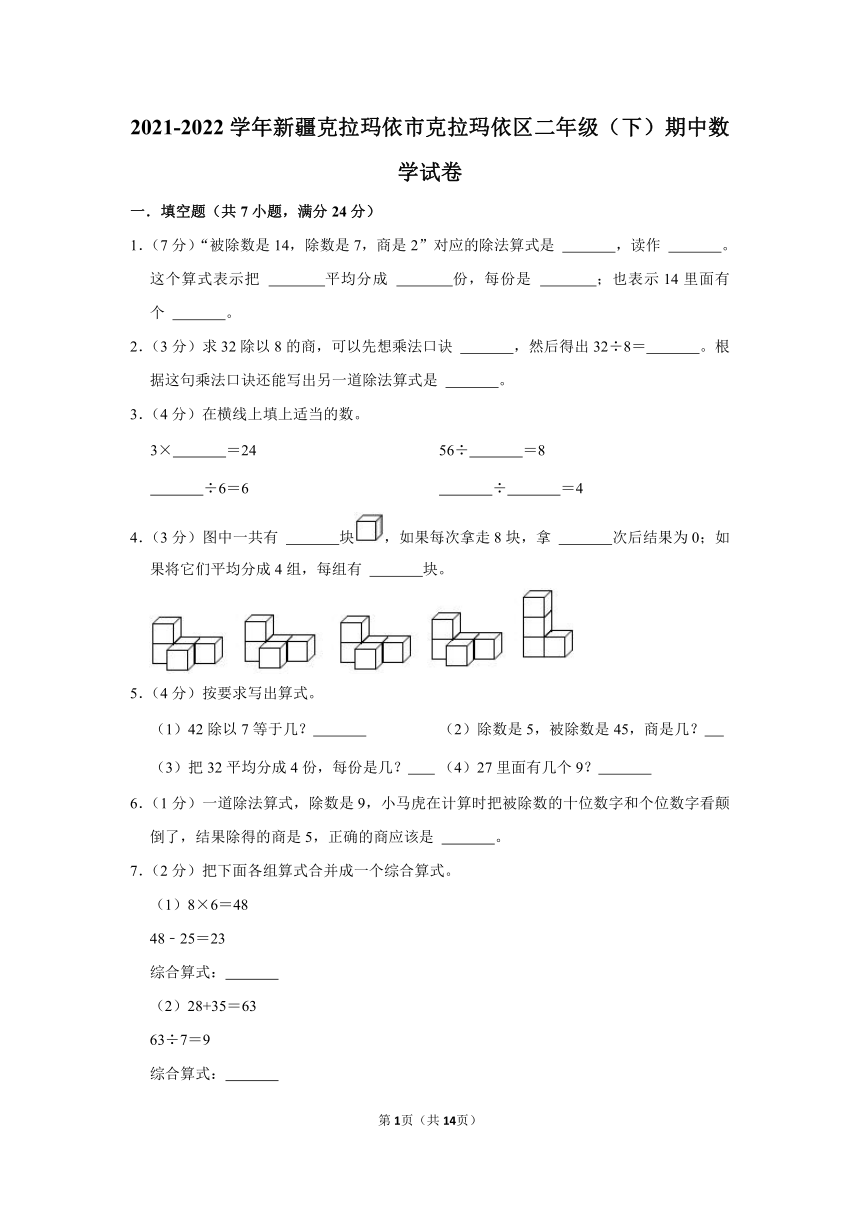 2021-2022 学年新疆克拉玛依市克拉玛依区二年级（下）期中数
学试卷
一．填空题（共 7 小题，满分 24 分）
1.（7 分）“被除数是 14，除数是 7，商是 2”对应的除法算式是 ______ ，读作 ______ 。
这个算式表示把 ______ 平均分成 ______ 份，每份是 ______ ；也表示 14 里面有
个 ______ 。
2.（3 分）求 32 除以 8 的商，可以先想乘法口诀 ______ ，然后得出 32÷8＝ ______ 。根
据这句乘法口诀还能写出另一道除法算式是 ______ 。
3.（4 分）在横线上填上适当的数。
3× ______ ＝24 56÷ ______ ＝8
______ ÷6＝6 ______ ÷ ______ ＝4
4.（3 分）图中一共有 ______ 块，如果每次拿走 8 块，拿 ______ 次后结果为 0；如
果将它们平均分成 4 组，每组有 ______ 块。
5.（4 分）按要求写出算式。
（1）42 除以 7 等于几？ ______ （2）除数是 5，被除数是 45，商是几？ __
（3）把 32 平均分成 4 份，每份是几？ ___ （4）27 里面有几个 9？ ______
6.（1 分）一道除法算式，除数是 9，小马虎在计算时把被除数的十位数字和个位数字看颠
倒了，结果除得的商是 5，正确的商应该是 ______ 。
7.（2 分）把下面各组算式合并成一个综合算式。
（1）8×6＝48
48﹣25＝23
综合算式： ______
（2）28+35＝63
63÷7＝9
综合算式： ______
第 1页（共 14页）